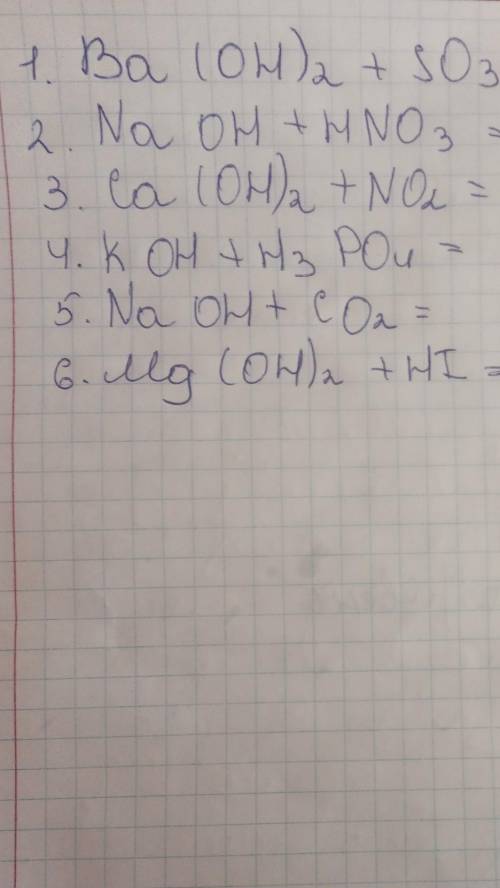 1. Ba (OH)₂ + SO₃
2. Na OH + HNO₃ =
3. Ca (OH)₂ + NO₂ =
4. K OH + H₃ PO₄ =
5. Na OH + CO₂ =
6. Mg (OH)₂ + HI =